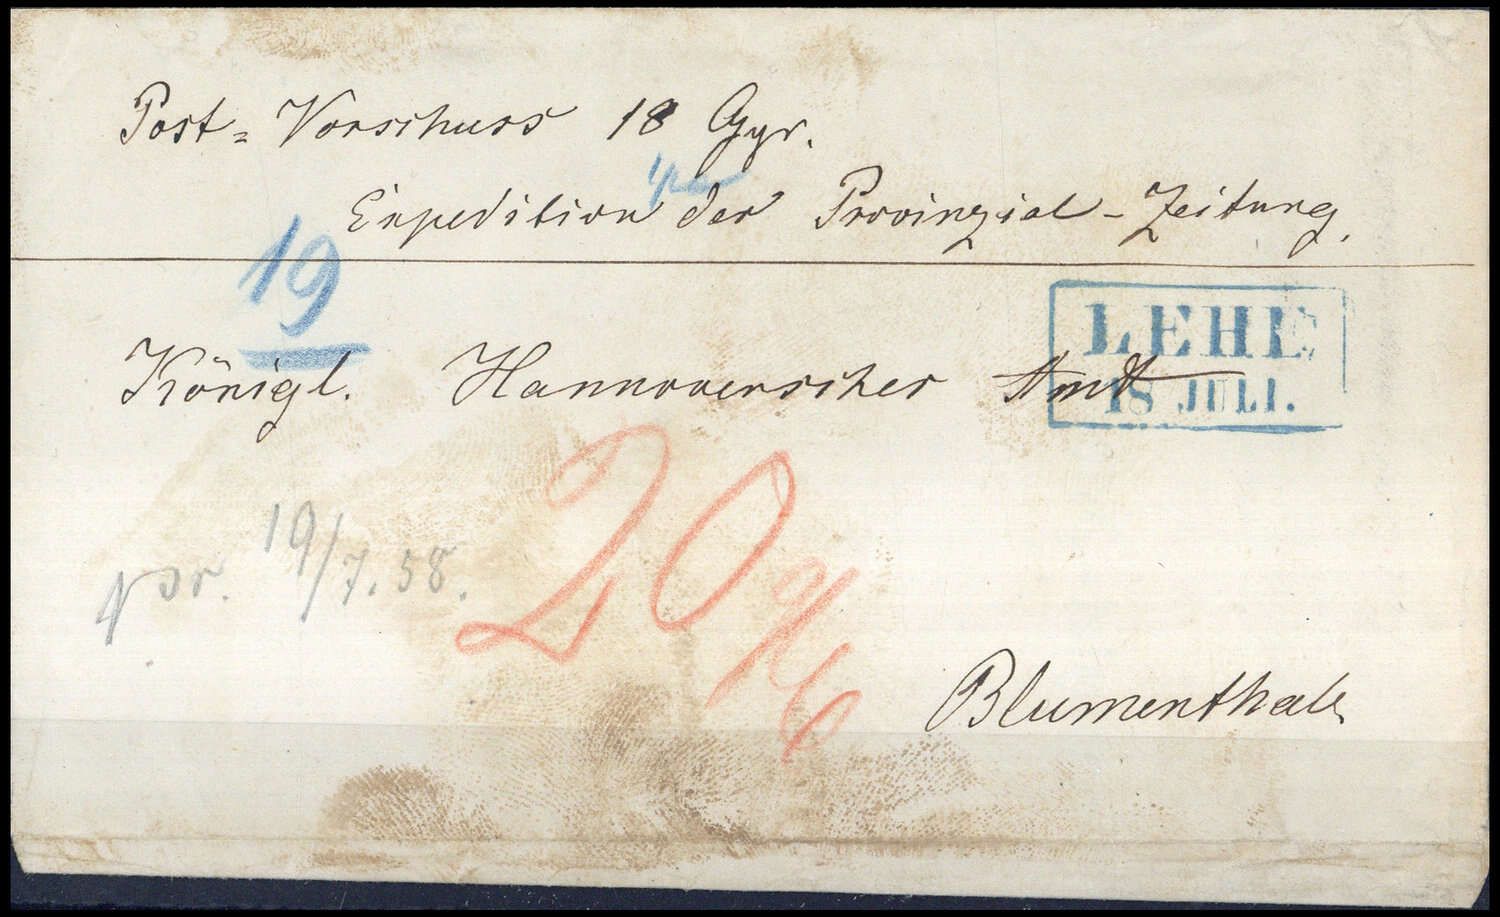 Post = Vorschuss 18 Ggr.
Expedition der Provinzial - Zeitung.
19
LEHE
18 JULI.
Königl. Hannoverscher Amt
19/7.58.
20
Blumenthal